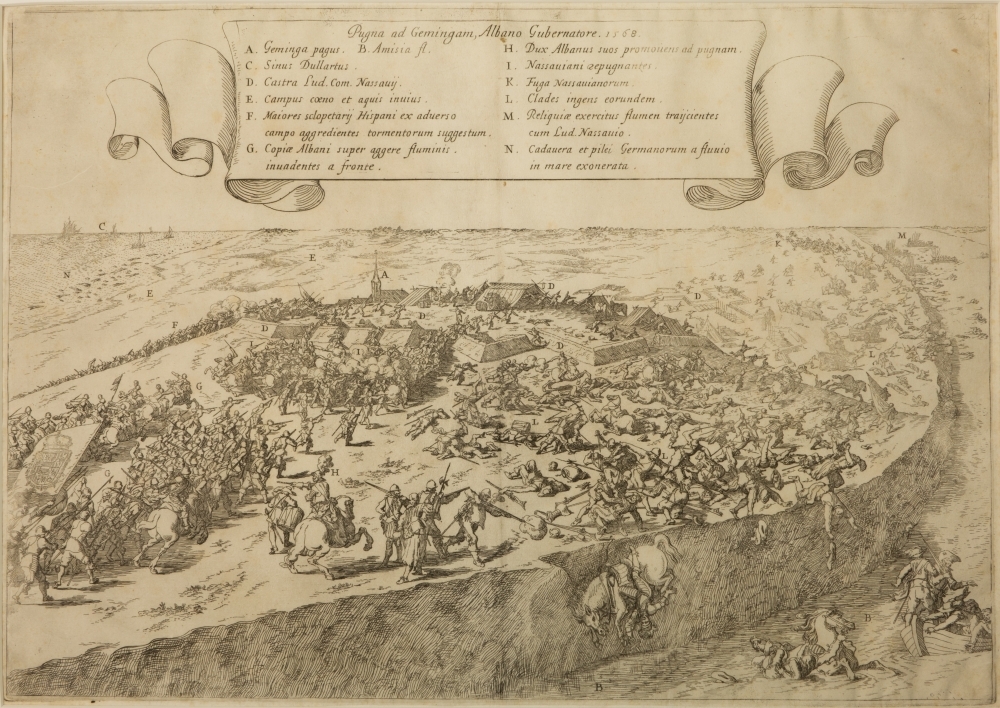 Pugna ad Gemingam, Albano Gubernatore. 1568.
A. Geminga pagus. B. Amisia fl.
C. Sinus Dullartus.
D. Castra Lud. Com. Nassauij.
E. Campus cœno et aquis inuius.
F. Maiores sclopetarij Hispani ex aduerso
campo aggredientes tormentorum suggestum.
G. Copiæ Albani super aggere fluminis.
inuadentes a fronte.
H. Dux Albanus suos promouens ad pugnam.
I. Nassauiani repugnantes.
K. Fuga Nassauianorum.
L. Clades ingens eorundem.
M. Reliquiæ exercitus flumen traijcientes
cum Lud. Nassauio.
N. Cadauera et pilei Germanorum a fluuio
in mare exonerata.
C
K
M
N
E
E
A
D
D
F
D
D
I
D
L
G
L
G
H
B
B